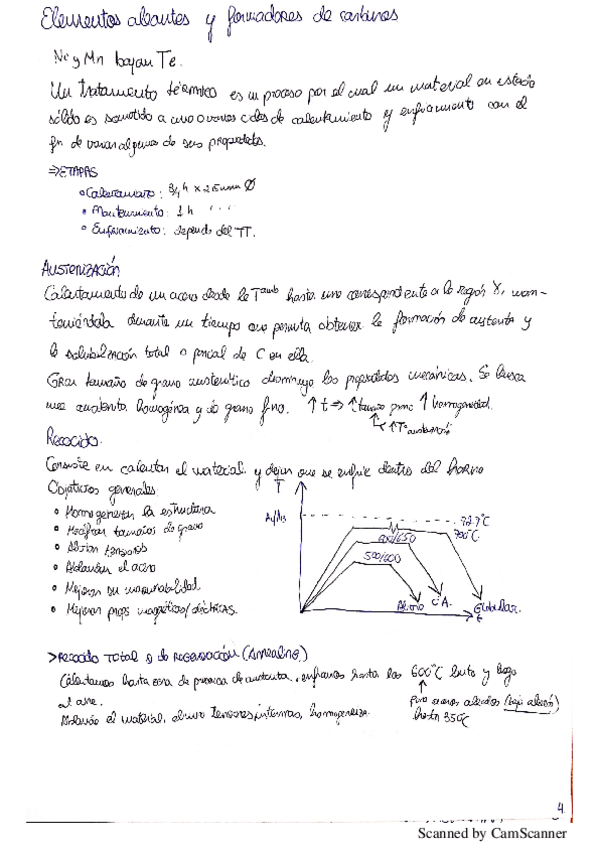 Elementos aleantes y formadores de carburos
Ni y Mn bajan Te.
Un tratamiento térmico es un proceso por el cual un material en estado
sólido es sometido a uno o varios ciclos de calentamiento y enfriamiento con el
fin de variar algunas de sus propiedades.
⇒ ETAPAS
• Calentamiento: 3/4 h x 25mm Ø
• Mantenimiento: 1 h " "
• Enfriamiento: depende del TT.
AUSTENIZACIÓN
Calentamiento de un acero desde la Tamb hasta una correspondiente a la región γ, man-
teniéndola durante un tiempo que permita obtener la formación de austenita y
la solubilización total o parcial de C en ella.
Gran tamaño de grano austenítico disminuye las propiedades mecánicas. Se busca
una austenita homogénea y de grano fino. ↑ t ⇒ ↑ tamaño grano ↑ homogeneidad.
↑ Tª austenización
Recocido.
Consiste en calentar el material y dejar que se enfríe dentro del horno
Objetivos generales:
• Homogeneizar la estructura
• Refinar tamaños de grano
• Aliviar tensiones
• Ablandar el acero
• Mejorar su maquinabilidad
• Mejorar props magnéticas/eléctricas.
T
727°C
700°C
600/650
500/600
Alivio C.A. Globular.
t
> RECOCIDO TOTAL o de REGENERACIÓN (Annealing)
Calentamos hasta zona de presencia de austenita, enfriamos hasta los 600°C lento y luego
al aire.
para aceros aleados (baja aleación)
hasta 350°C
Ablanda el material, elimina tensiones internas, homogeneiza.
4
Scanned by CamScanner